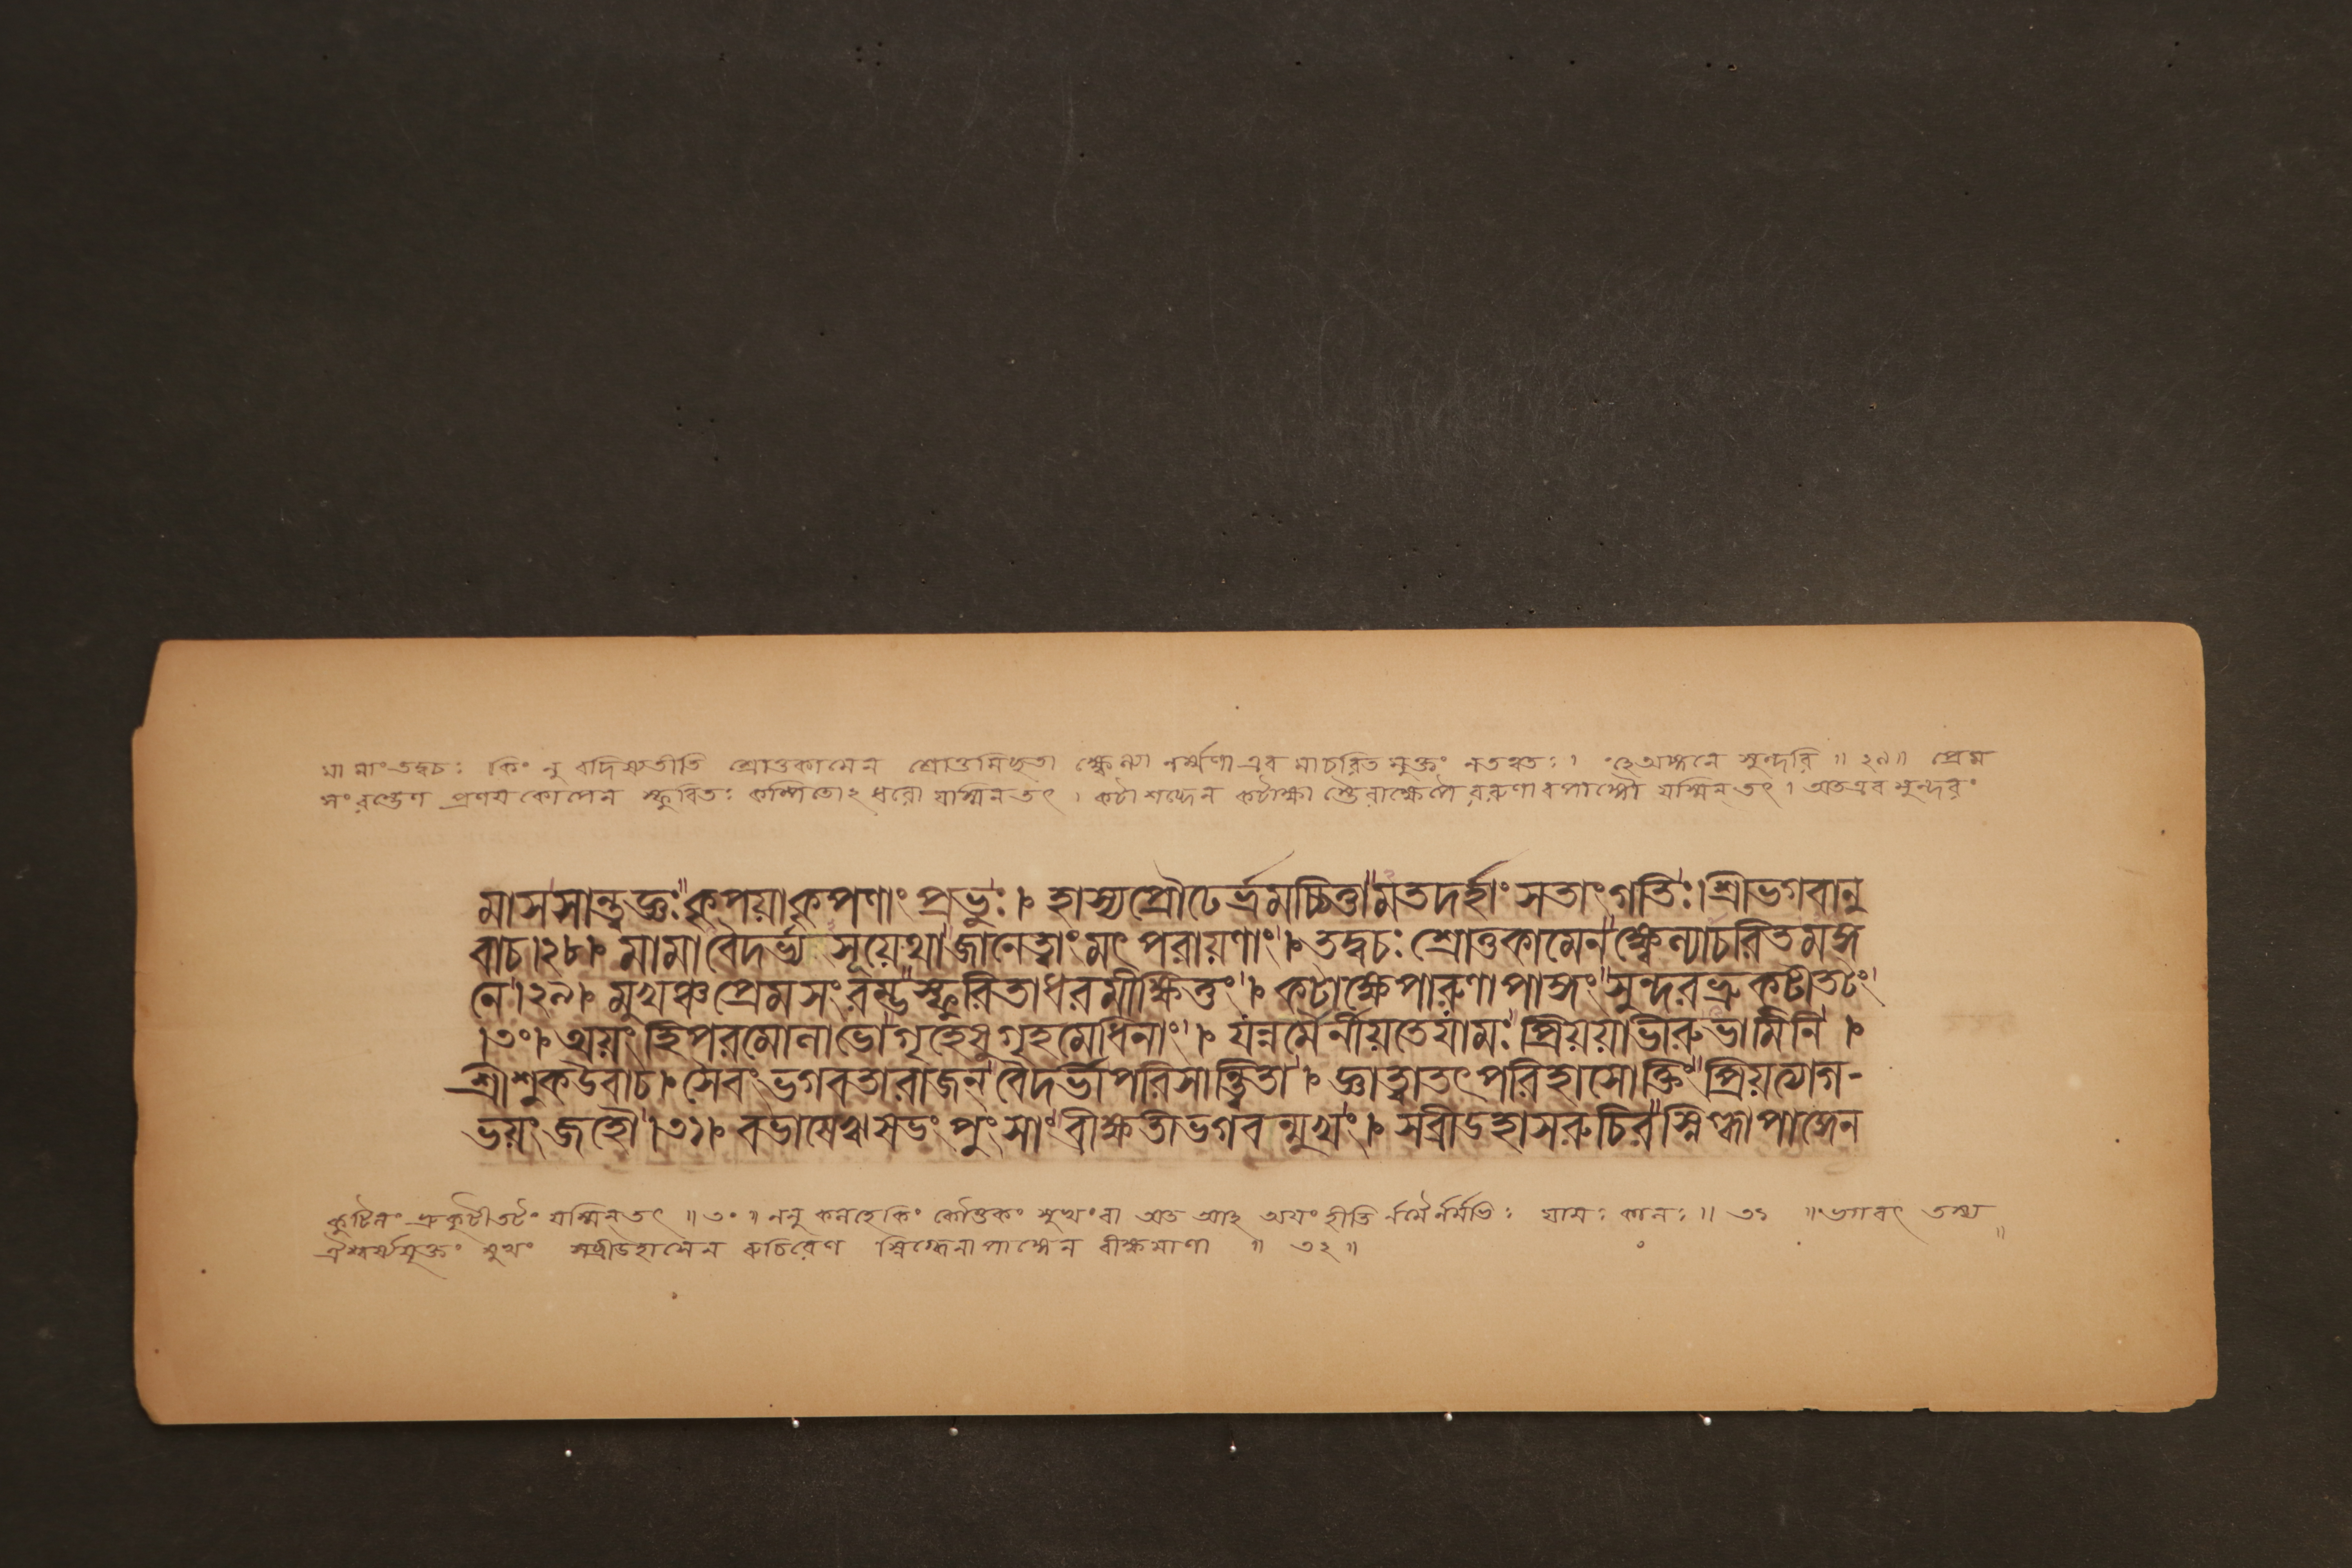 মা মাং তদ্বচঃ কিং নু বদিষ্যতীতি শ্রোতুকামেন শ্রোতুমিচ্ছতা ক্ষ্বেল্যা নর্ম্মণা এব মাচরিত মুক্তং নতত্বতঃ। হে অঙ্গনে সুন্দরি ॥ ২৯॥ প্রেম
সংরম্ভেণ প্রণয়কোপেন স্ফুরিতঃ কম্পিতোঽধরো যস্মিন্ তৎ। কটাশব্দেন কটাক্ষা অরুণাবপাঙ্গৌ যস্মিন্ তৎ। অতএব সুন্দরং
মাসসান্ত্বজ্ঞঃ কৃপয়া কৃপণাং প্রভুঃ। হাস্যপ্রৌঢের্ভ্রমচ্চিত্তা মতদর্হাং সতাংগতিঃ। শ্রীভগবানু
বাচ।২৮। মামা বৈদর্ভ্য সূয়েথা জানেত্বাং মৎ পরায়ণাং। তদ্বচঃ শ্রোতুকামেন ক্ষ্বেল্যাচরিতমঙ্গ
নে।২৯। মুখঞ্চ প্রেমসংরম্ভ স্ফুরিতাধরমীক্ষিতুং। কটাক্ষেপারুণাপাঙ্গং সুন্দরভ্রুকটীতটং
।৩০। অয়ং হি পরমোলাভো গৃহেষু গৃহমেধিনাং। যন্নর্মৈর্নীয়তে যামঃ প্রিয়য়া ভীরু ভামিনি।
শ্রীশুকউবাচ। সৈবং ভগবতা রাজন্ বৈদর্ভী পরিসান্ত্বিতা। জ্ঞাত্বা তৎ পরিহাসোক্তিং প্রিয়ত্যাগ-
ভয়ং জহৌ।৩১। বভাষেঋষভং পুংসাং বীক্ষতী ভগবন্মুখং। সব্রীডহাসরুচির স্নিগ্ধাপাঙ্গেন
কুটিলং ভ্রুকুটীতটং যস্মিন্ তৎ ॥ ৩০ ॥ ননু কলহে কিং কৌতুকং সুখং বা অত আহ অয়ং হীতি নর্মৈর্নর্মভিঃ যামঃ কালঃ ॥ ৩১ ॥ তস্য
ঐশ্বর্য্যযুক্তং মুখং সব্রীডহাসেন রুচিরেণ স্নিগ্ধেনাপাঙ্গেন বীক্ষমাণা ॥ ৩২ ॥